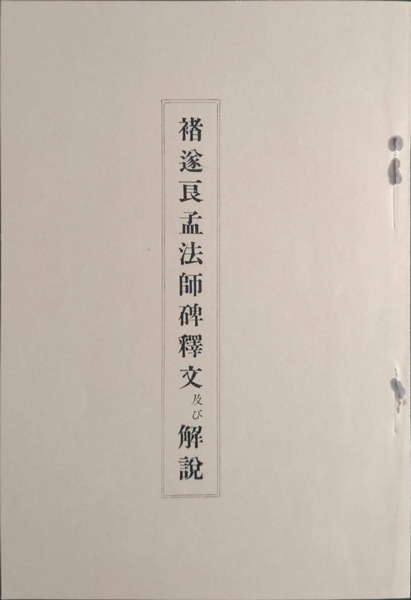 褚遂良孟法師碑釋文及び解說